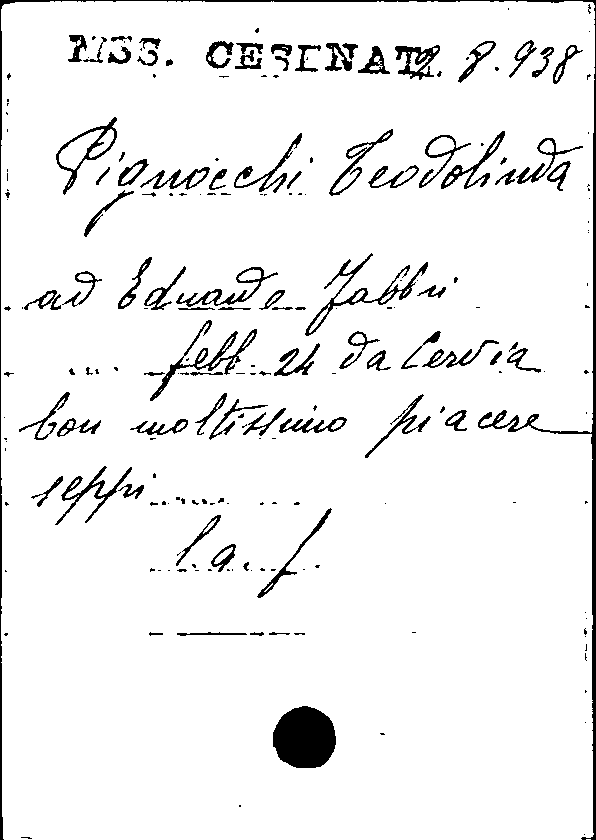 MSS. CESENATI 2. 8. 938
Pignocchi Teodolinda
ad Eduardo Fabbri
.... febb. 24 da Cervia
Con moltissimo piacere
seppi ....
l. a. f.